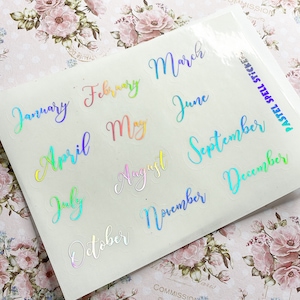 January February March
April May June
July August September
October November December
PASTEL SPELL